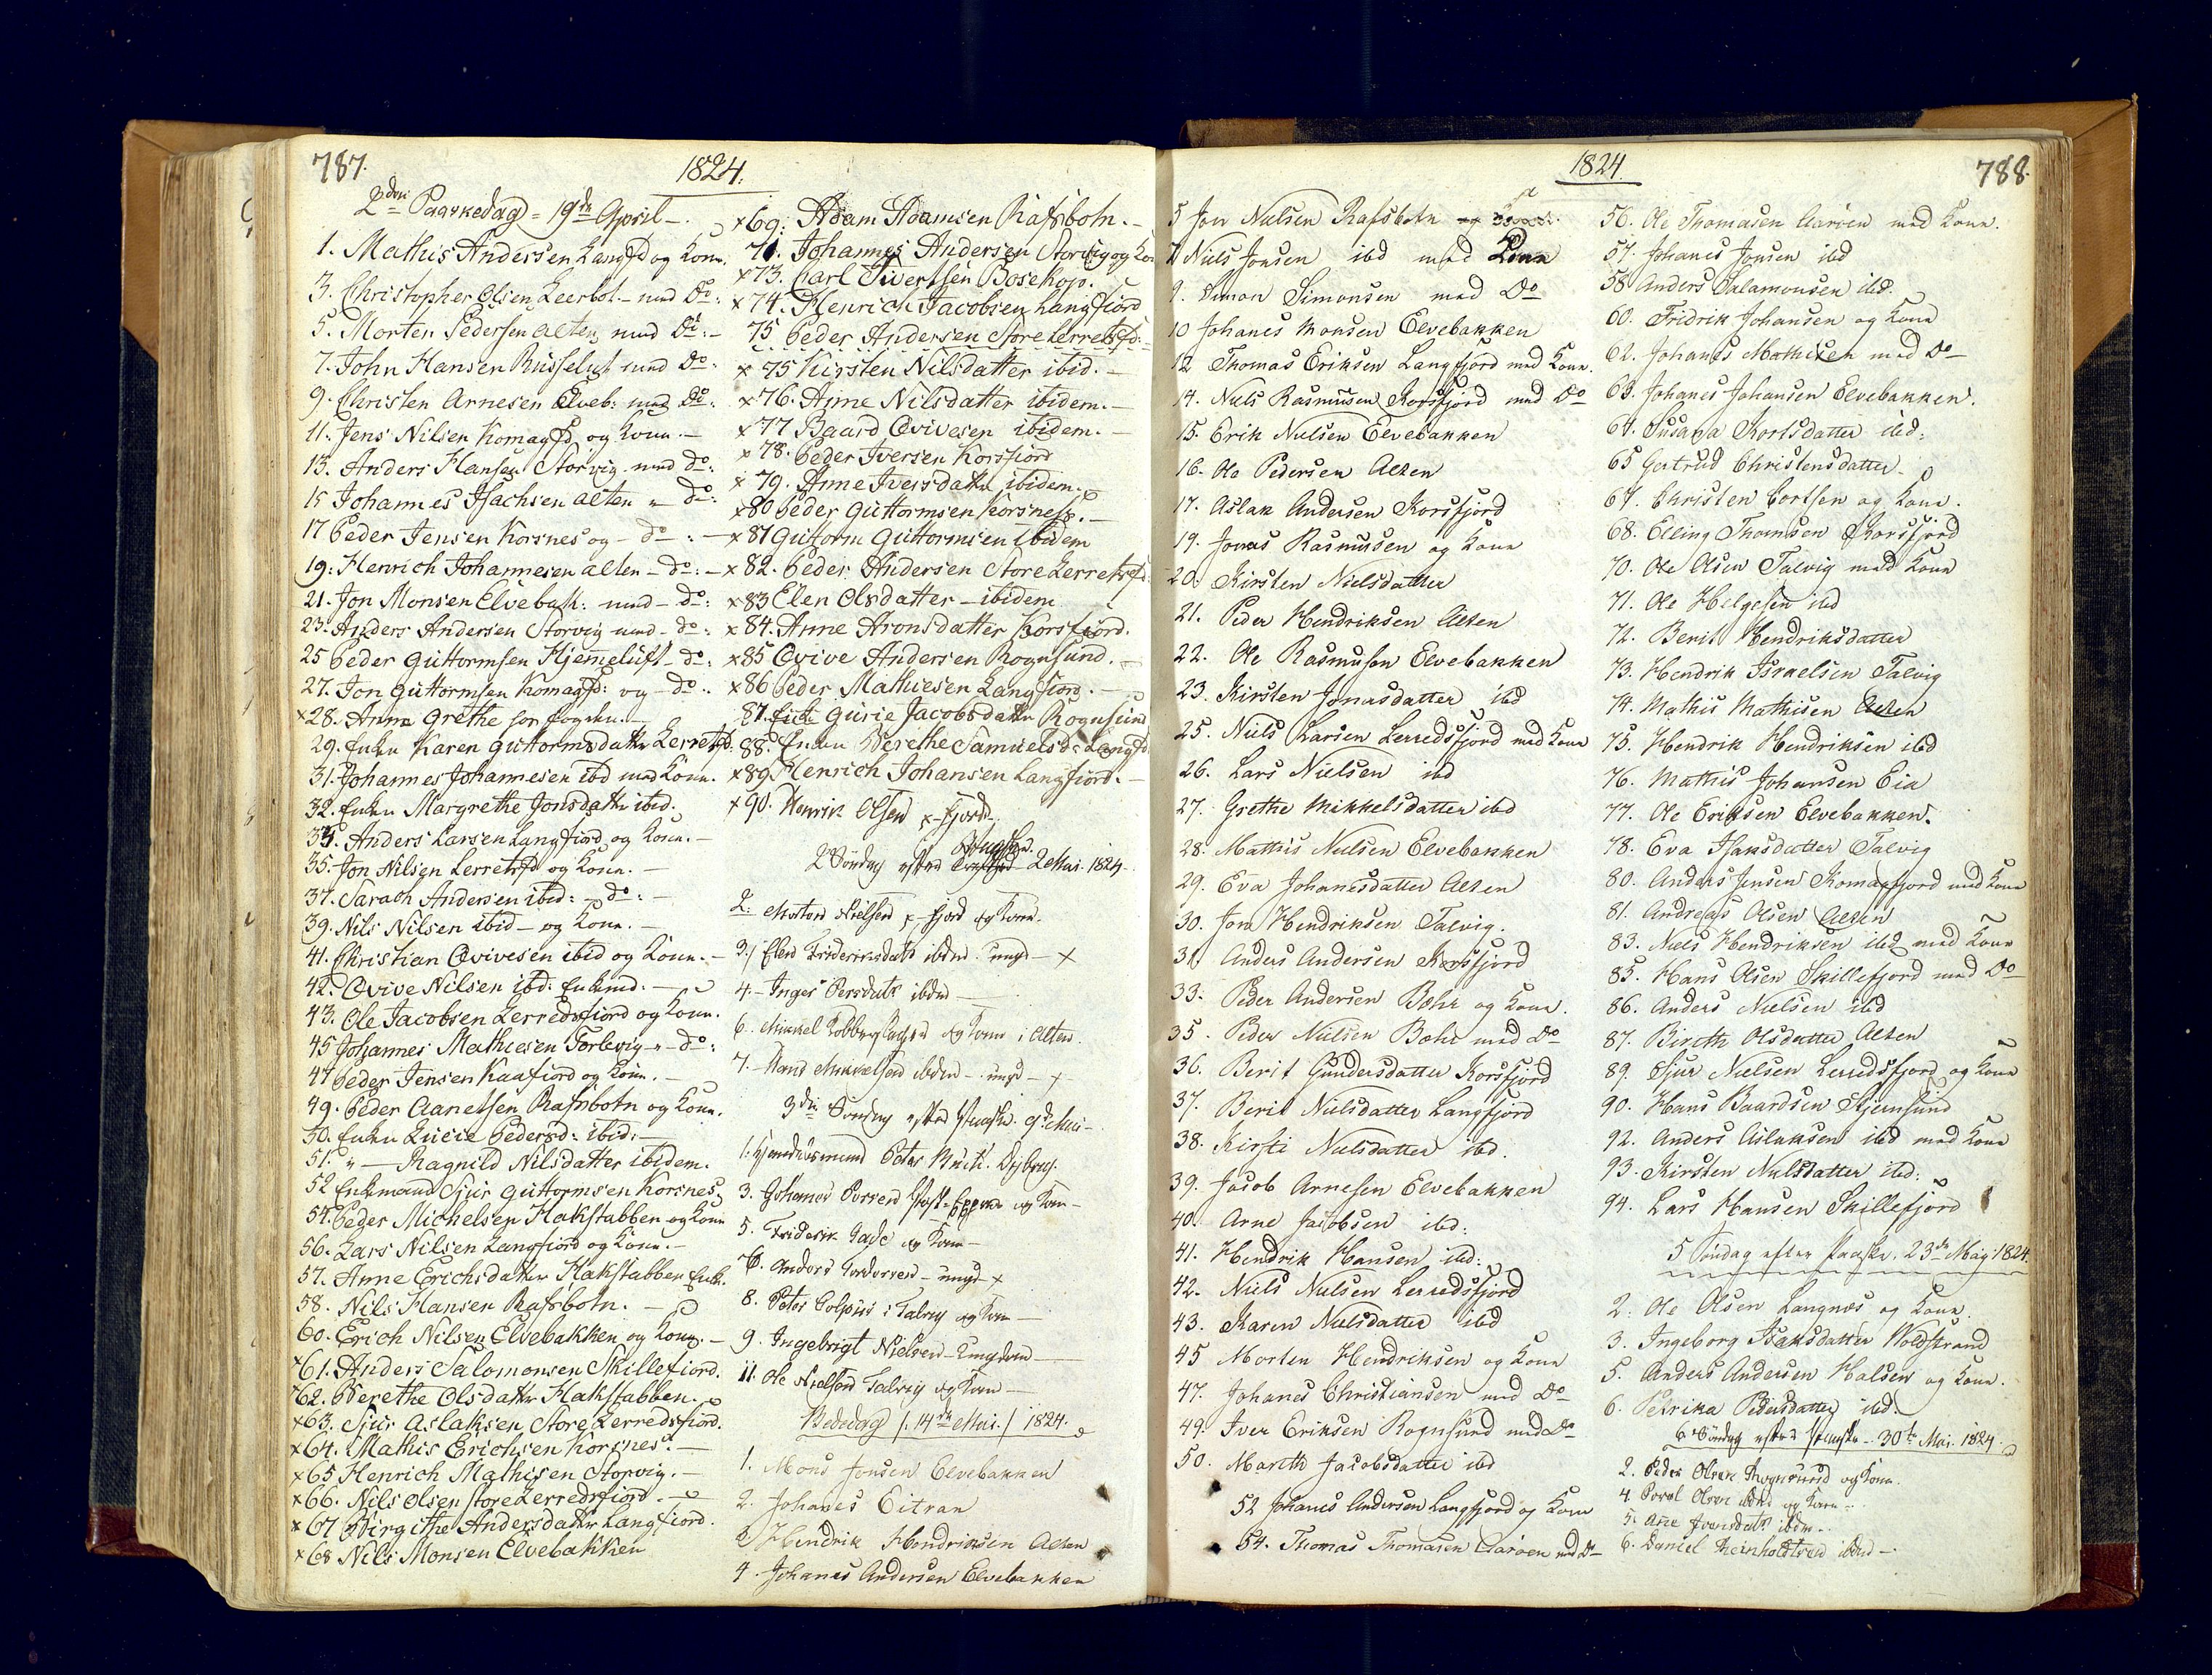 787.
1824.
2den Paaskedag = 19de April -.
1. Mathis Andersen Langfd og Kone.
3. Christopher Olsen Leerbot. - med Do:
5. Morten Pedersen Alten med Do: -
7. John Hansen Russelust med Do:
9. Christen Arnesen Elveb: med Do:
11. Jens Nilsen Komagfd og Kone. -
13. Anders Hansen Storvig med do:
15 Johannes Isachsen Alten " do:
17 Peder Jensen Korsnes og - do: -
19: Henrich Johannesen Alten - do: -
21. Jon Monsen Elvebak: med - do:
23. Anders Andersen Storvig med - do:
25 Peder Guttormsen Hjemmeluft - do:
27. Jon Guttormsen Komagfd: og - do:
x 28. Anne Grethe hos Fogden. -
29. Enken Karen Guttormsdatter Lerretsfd.
31. Johannes Johannesen ibd med Kone.
32. Enken Margrethe Jonsdatter ibid.
33. Anders Larsen Langfiord og Kone. -
35. Jon Nilsen Lerretsfd og Kone. -
37. Sarach Andersen ibid: - do: -
39. Nils Nilsen ibid - og Kone. -
41. Christian Qvivesen ibid og Kone. -
42. Qvive Nilsen ibd: Enkemd. -
43. Ole Jacobsen Lerredsfiord og Kone.
45 Johannes Mathiesen Torbvig " do:
47 Peder Jensen Kaafiord og Kone. -
49. Peder Aanetsen Rafsbotn og Kone.
50. Enken Lucie Pedersd: ibid: -
51. " - Ragnild Nilsdatter ibidem.
52 Enkemand Sjur Guttormsen Korsnes
54. Peder Michelsen Hakstabben og Kone
56. Lars Nilsen Langfiord og Kone. -
57. Anne Erichsdatter Hakstabben Enk.
58. Nils Hansen Rafsbotn. -
60. Erich Nilsen Elvebakken og Kone. -
x 61. Anders Salomonsen Skillefiord.
x 62. Berethe Olsdatter Hakstabben.
x 63. Sjur Aslaksen Store Lerredsfiord.
x 64. Mathis Erichsen Korsnes. -
x 65 Henrich Mathisen Storvig. -
x 66. Nils Olsen Store Lerredsfiord. -
x 67 Birgithe Andersdatter Langfiord.
x 68 Nils Monsen Elvebakken
x 69: Adam Adamsen Rafsbotn. -
71. Johannes Andersen Storvig og Ko
x 73. Carl Sivertsen Bosekop.
x 74. Henrich Jacobsen Langfiord
75 Peder Andersen Store Lerretsfd: -
x 75 Kirsten Nilsdatter ibid. -
x 76. Anne Nilsdatter ibidem. -
x 77 Baard Qvivesen ibidem. -
x 78. Peder Iversen Korsfiord
x 79. Anne Iversdatter ibidem.
x 80 Peder Guttormsen Korsness. -
x 81 Guttorm Guttormsen ibidem
x 82. Peder Andersen Store Lerretsfd:
x 83 Elen Olsdatter - ibidem
x 84. Anne Aronsdatter Korsfiord.
x 85 Qvive Andersen Rognsund. -
x 86 Peder Mathiesen Langfiord. -
87. Enke Gurie Jacobsdatter Rognsund
88. Enken Berethe Samuelsd: Langfd
x 89 Henrich Johansen Langfiord. -
x 90. Henrik Olsen x-fjord.
2 Søndag efter 2 Mai. 1824.
2. Morten Nielsen x-fjord og Kone.
3. / Elen Frideriksdatr ibdm. ungd - x
4. - Inger Persdatr ibdm -
6. og Kone i Alten.
7. Hans Mikkelsen ibdm - ungd - x
3die Søndag efter Paaske. 9de Mai -
1. Peter
3. Johannes og Kone -
5. Friderik Gade og Kone -
6. Anders - ungd x
8. Peter i Talvig og Kone -
9. Ingebrigt Nielsen - Ungdom -
11. Ole Nielsen Talvig og Kone -
Bededag /. 14de Mai. / 1824.
1. Mons Jonsen Elvebakken
2. Johanes Eitran
3 Hendrik Hendriksen Alten
4. Johanes Andersen Elvebakken
1824
788.
5 Jon Nielsen Rafsbotn
7 Niels Jonsen ibd med Kone
9. Simon Simonsen med Do
10 Johanes Monsen Elvebakken
12 Thomas Eriksen Langfjord med Kone.
14. Niels Rasmusen Korsfjord med Do
15. Erik Nielsen Elvebakken
16. Ole Pedersen Alten
17. Aslak Andersen Korsfjord
19. Jonas Rasmusen og Kone
20. Kirsten Nielsdatter
21. Peder Hendriksen Alten
22. Ole Rasmusen Elvebakken
23. Kirsten Jonasdatter ibd
25. Niels Larsen Lerredsfjord med Kone
26. Lars Nielsen ibd
27. Grethe Mikkelsdatter ibd
28. Mathis Nielsen Elvebakken
29. Eva Johanesdatter Alten
30. Jon Hendriksen Talvig.
31. Anders Andersen Korsfjord
33. Peder Andersen Bohr og Kone.
35. Peder Nielsen Bohr med Do
36. Berit Gundersdatter Korsfjord
37. Berit Nielsdatter Langfjord
38. Kirsti Nielsdatter ibd.
39. Jacob Arnesen Elvebakken
40. Arne Jacobsen ibd:
41. Hendrik Hansen ibd:
42. Niels Nielsen Lerredsfjord
43. Karen Nielsdatter ibd
45 Morten Hendriksen og Kone
47. Johanes Christiansen med Do
49. Iver Eriksen Rognsund med Do
50. Marith Jacobsdatter ibd
52 Johanes Andersen Langfjord og Kone
54. Thomas Thomasen Aarøen med Do
56. Ole Thomasen Aarøen med Kone.
57. Johanes Jonsen ibd
58 Anders Salamonsen ibd.
60. Fridrik Johansen og Kone
62. Johanes Mathisen med Do
63. Johanes Johansen Elvebakken.
64. Susana Korlsdatter ibd:
65 Gertrud Christensdatter
67. Christen Cortsen og Kone.
68. Elling Thomsen Korsfjord
70. Ole Olsen Talvig med Kone
71. Ole Helgesen ibd
72. Berit Hendriksdatter
73. Hendrik Israelsen Talvig
74. Mathis Mathisen Alten
75. Hendrik Hendriksen ibd
76. Mathis Johansen Eia
77. Ole Eriksen Elvebakken.
78. Eva Isaksdatter Talvig
80. Anders Jensen Komagfjord med Kone
81. Andreas Olsen Alten
83. Niels Hendriksen ibd med Kone
85. Hans Olsen Skillefjord med Do
86. Anders Nielsen ibd
87. Bireth Olsdatter Alten
89. Sjur Nielsen Lerredsfjord og Kone
90. Hans Baardsen Stjernsund
92. Anders Aslaksen ibd med Kone
93. Kirsten Nielsdatter ibd:
94. Lars Hansen Skillefjord
5 Søndag efter Paaske. 23de Maj. 1824.
2. Ole Olsen Langnæs og Kone.
3. Ingeborg Isaksdatter Woldstrand
5. Anders Andersen Halsen og Kone.
6. Petrika Pedersdatter ibd.
6 Søndag efter Paaske - 30te Mai. 1824.
2. Peder Olsen Rognsund og Kone.
4. Povel Olsen ibdm og Kone -.
5. Ane Iversdatr ibdm -.
6. Daniel Reinholdtsen ibdm -.